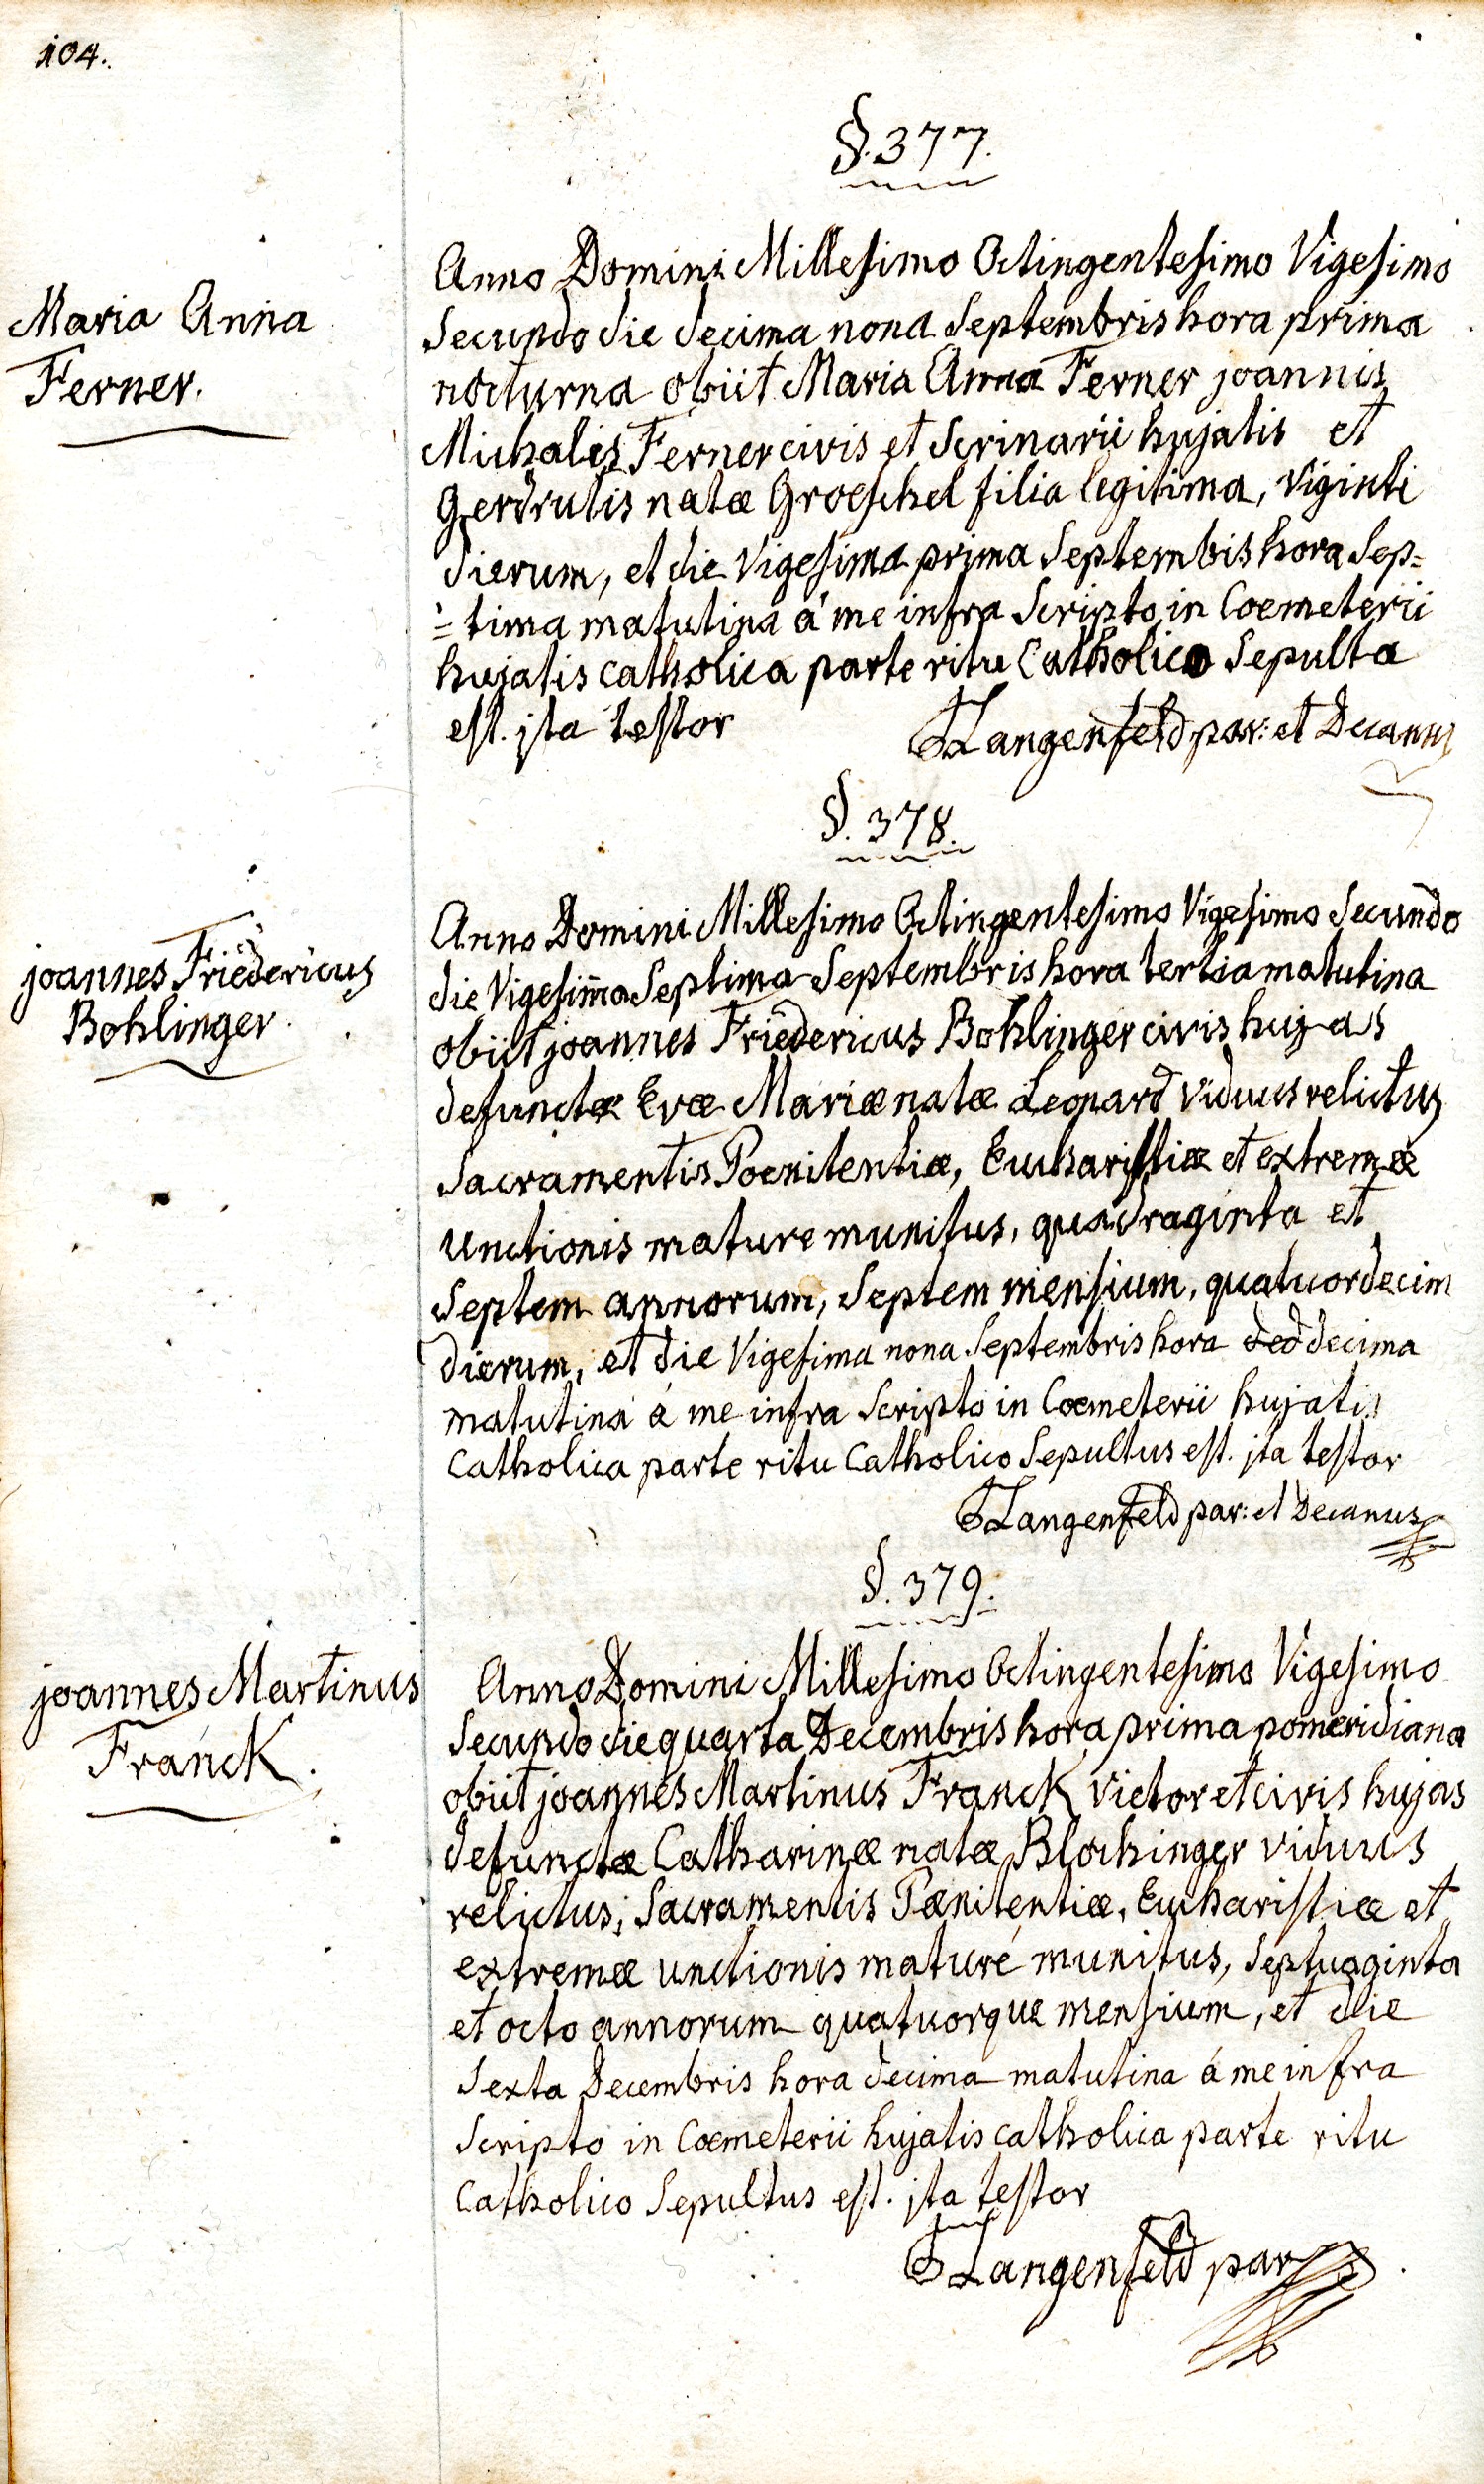 104.
§. 377.
Maria Anna
Ferner.
Anno Domini Millesimo Octingentesimo Vigesimo
Secundo die decima nona Septembris hora prima
nocturna obiit Maria Anna Ferner joannis
Michalis Ferner civis et Scrinarii hujatis et
Gerdrutis natæ Groeschel filia legitima, viginti
dierum, et die Vigesima prima Septembis hora Sep=
=tima matutina á me infra Scripto in Coemeterii
hujatis catholica parte ritu Catholico Sepulta
est. jta testor
Langenfeld par: et Decanus
§. 378.
joannes Friedericus
Bohlinger.
Anno Domini Millesimo Octingentesimo Vigesimo Secundo
die Vigesima Septima Septembris hora tertia matutina
obiit joannes Friedericus Bohlinger civis hujas
defunctæ Evæ Mariæ natæ Leonard viduus relictus
Sacramentis Poenitentiæ, Eucharistiæ et extremæ
Unctionis mature munitus, quadraginta et
Septem annorum, Septem mensium, quatuordecim
dierum, et die Vigesima nona Septembris hora ded decima
matutina á me infra Scripto in Coemeterii hujatis
Catholica parte ritu Catholico Sepultus est. jta testor
Langenfeld par: et Decanus
§. 379.
joannes Martinus
Franck.
Anno Domini Millesimo Octingentesimo Vigesimo
Secundo die quarta Decembris hora prima pomeridiana
obiit joannes Martinus Franck Victor et civis hujas
defunctæ Catharinæ natæ Blochinger viduus
relictus, Sacramentis Pœnitentiæ, Eucharistiæ et
extremæ unctionis maturé munitus, Septuaginta
et octo annorum quatuorque mensium, et die
Sexta Decembris hora decima matutina á me infra
Scripto in Coemeterii hujatis catholica parte ritu
Catholico Sepultus est. jta testor
Langenfeld par